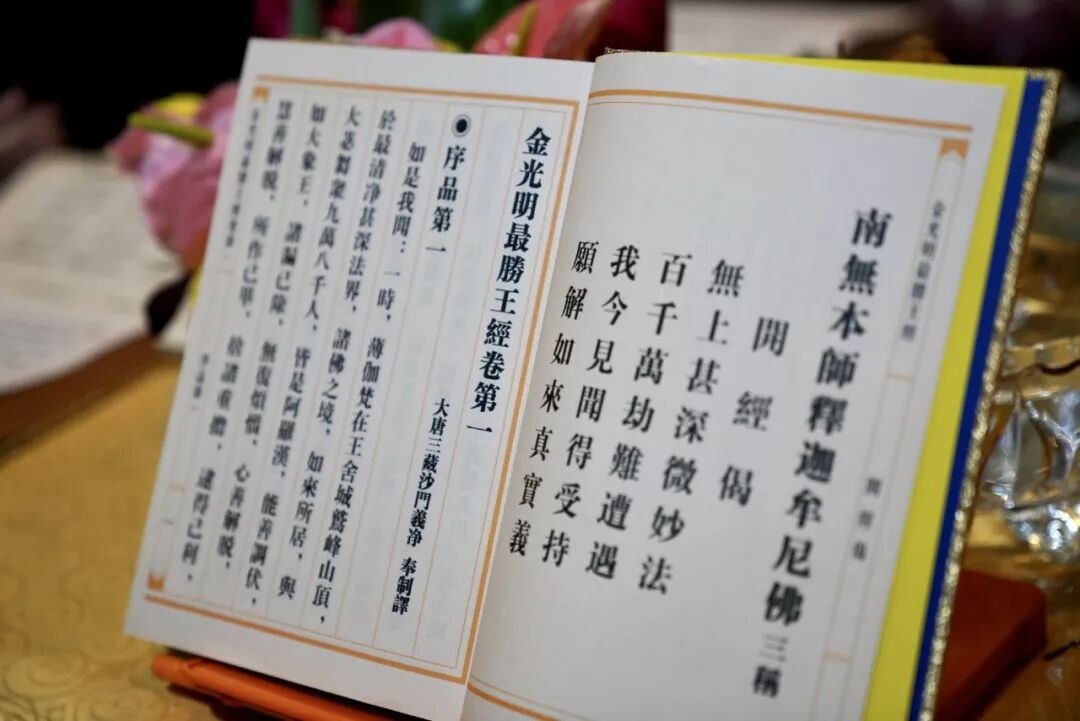 金光明最勝王經
南無本師釋迦牟尼佛三稱
開經偈
無上甚深微妙法
百千萬劫難遭遇
我今見聞得受持
願解如來真實義
金光明最勝王經卷第一
大唐三藏沙門義净 奉制譯
◉序品第一
如是我聞：一時，薄伽梵在王舍城鷲峰山頂，
於最清净甚深法界，諸佛之境，如來所居，與
大苾芻衆九萬八千人，皆是阿羅漢，能善調伏，
如大象王，諸漏已除，無復煩惱，心善解脱，
慧善解脱，所作已畢，捨諸重擔，逮得己利，